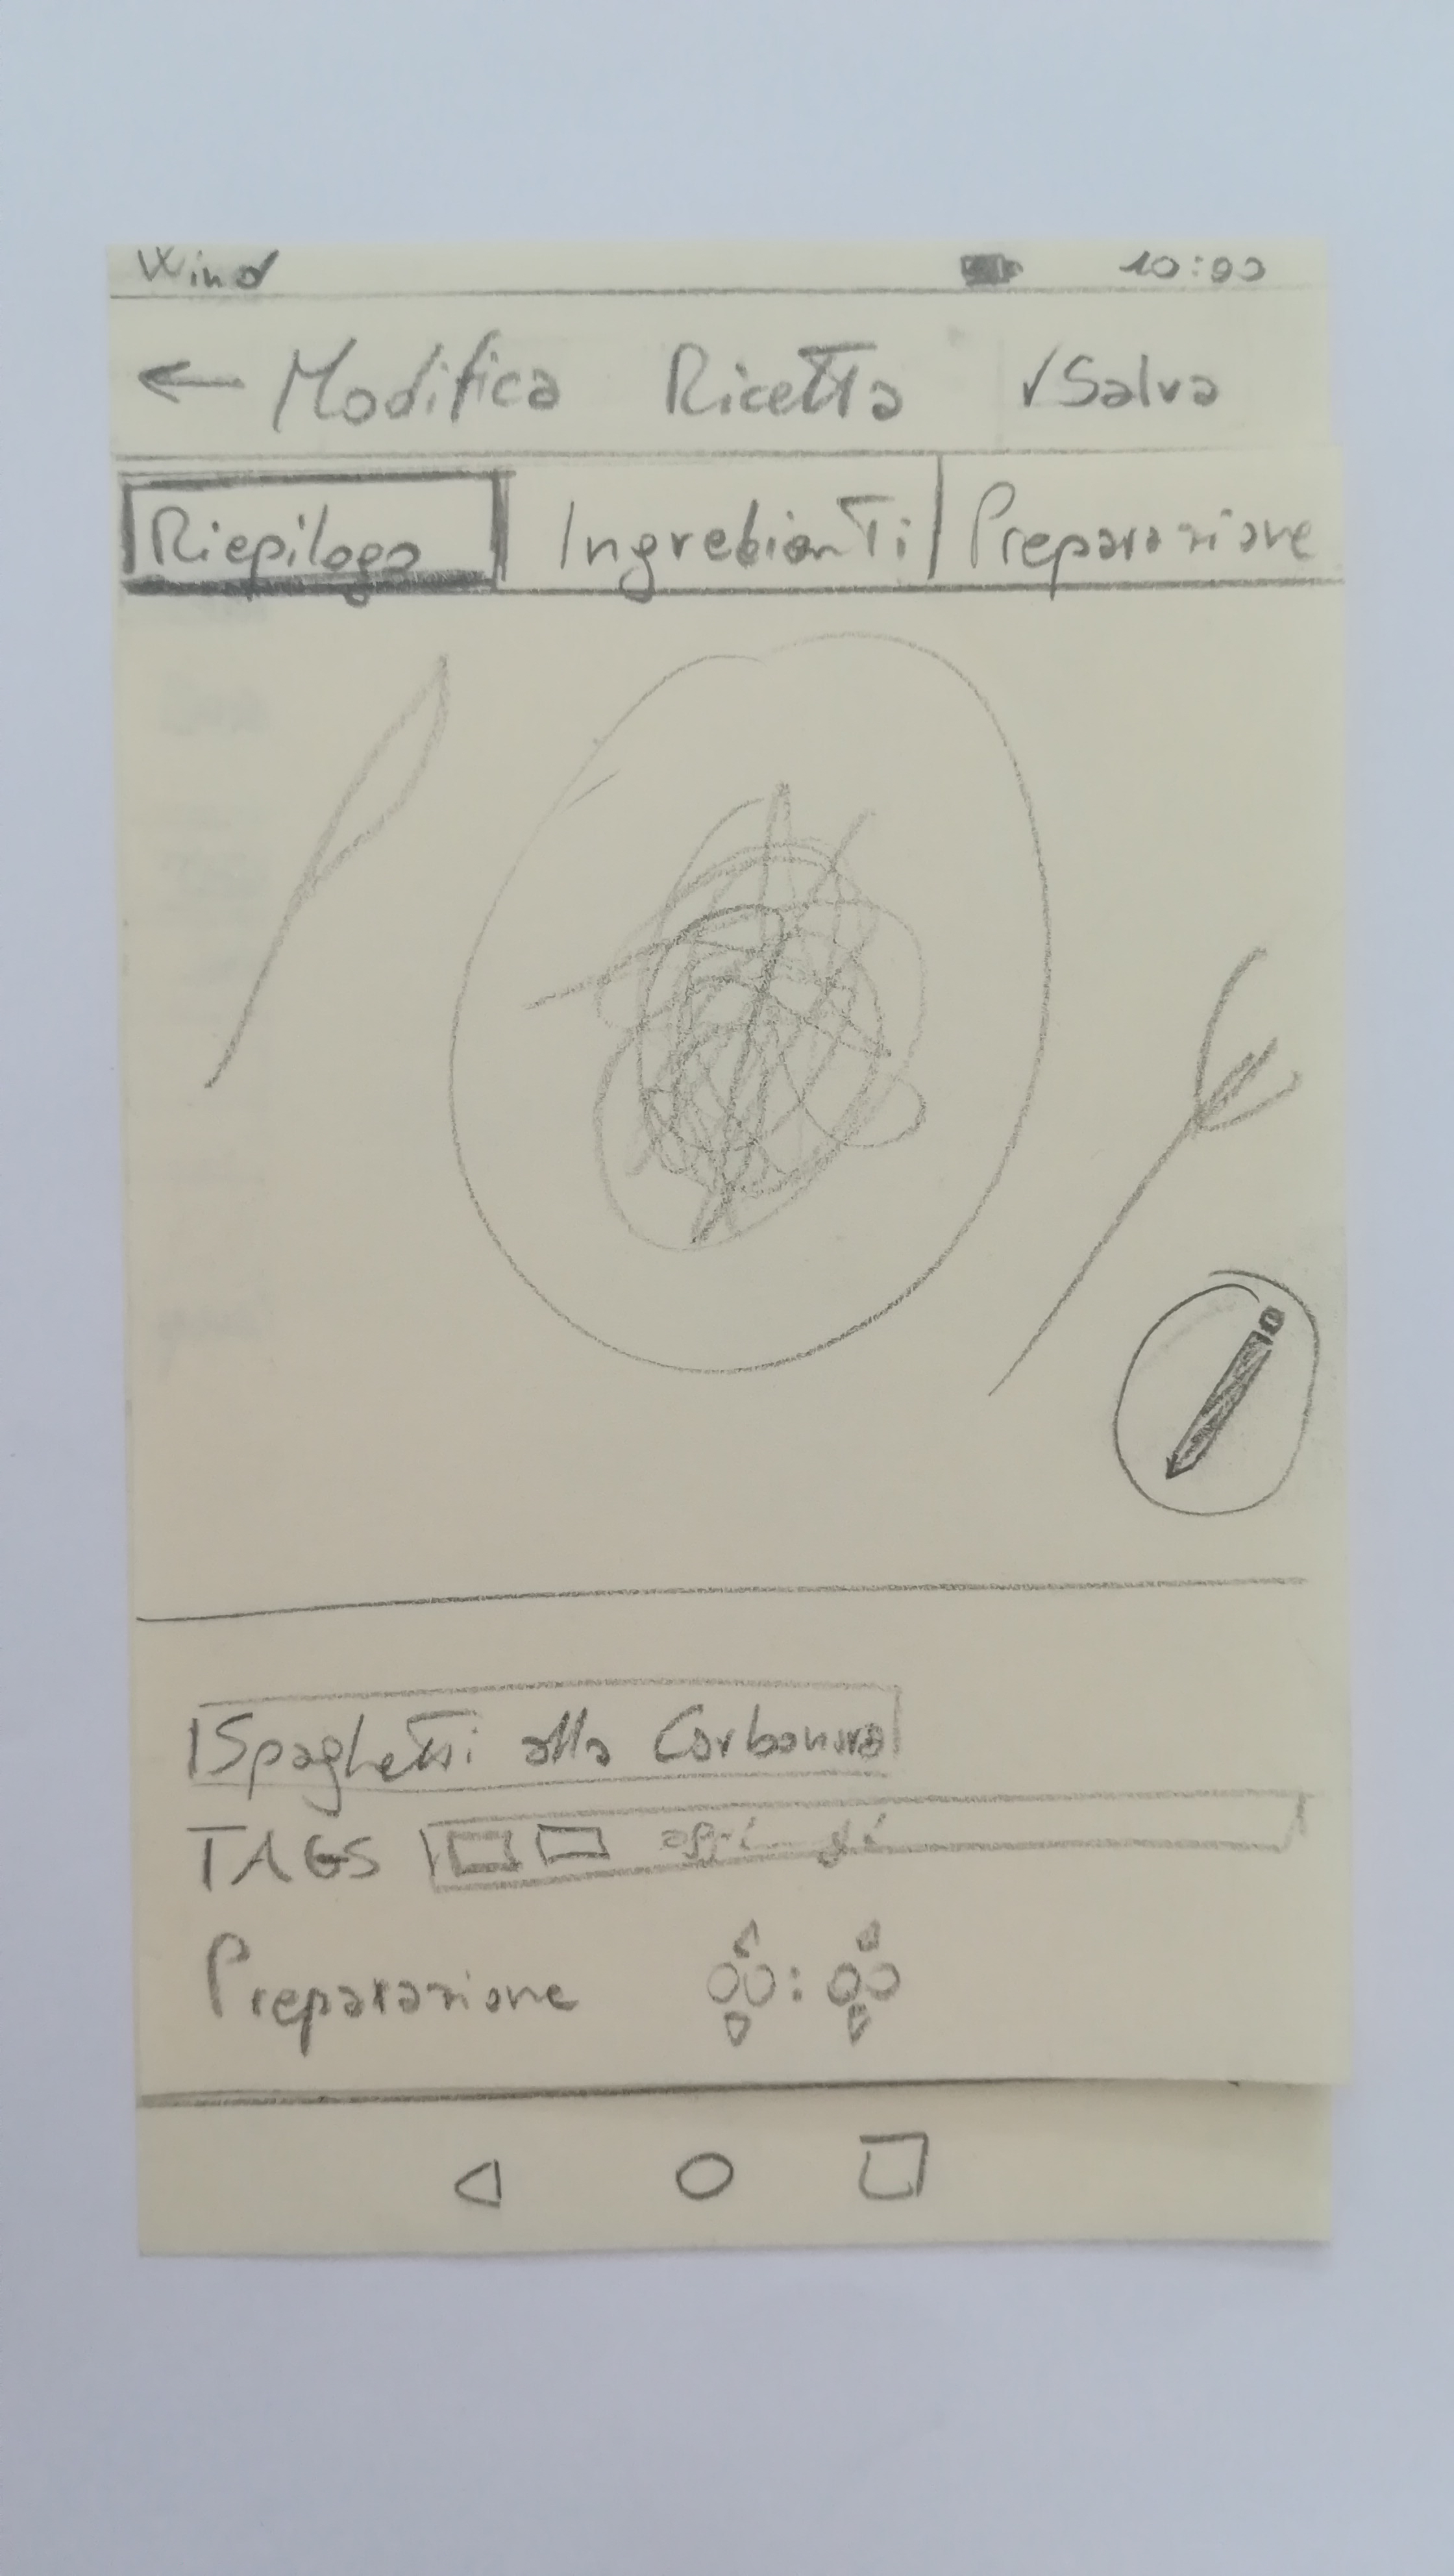 Wind 10:00
← Modifica Ricetta √Salva
Riepilogo Ingredienti Preparazione
Spaghetti alla Carbonara
TAGS
Preparazione 00:00